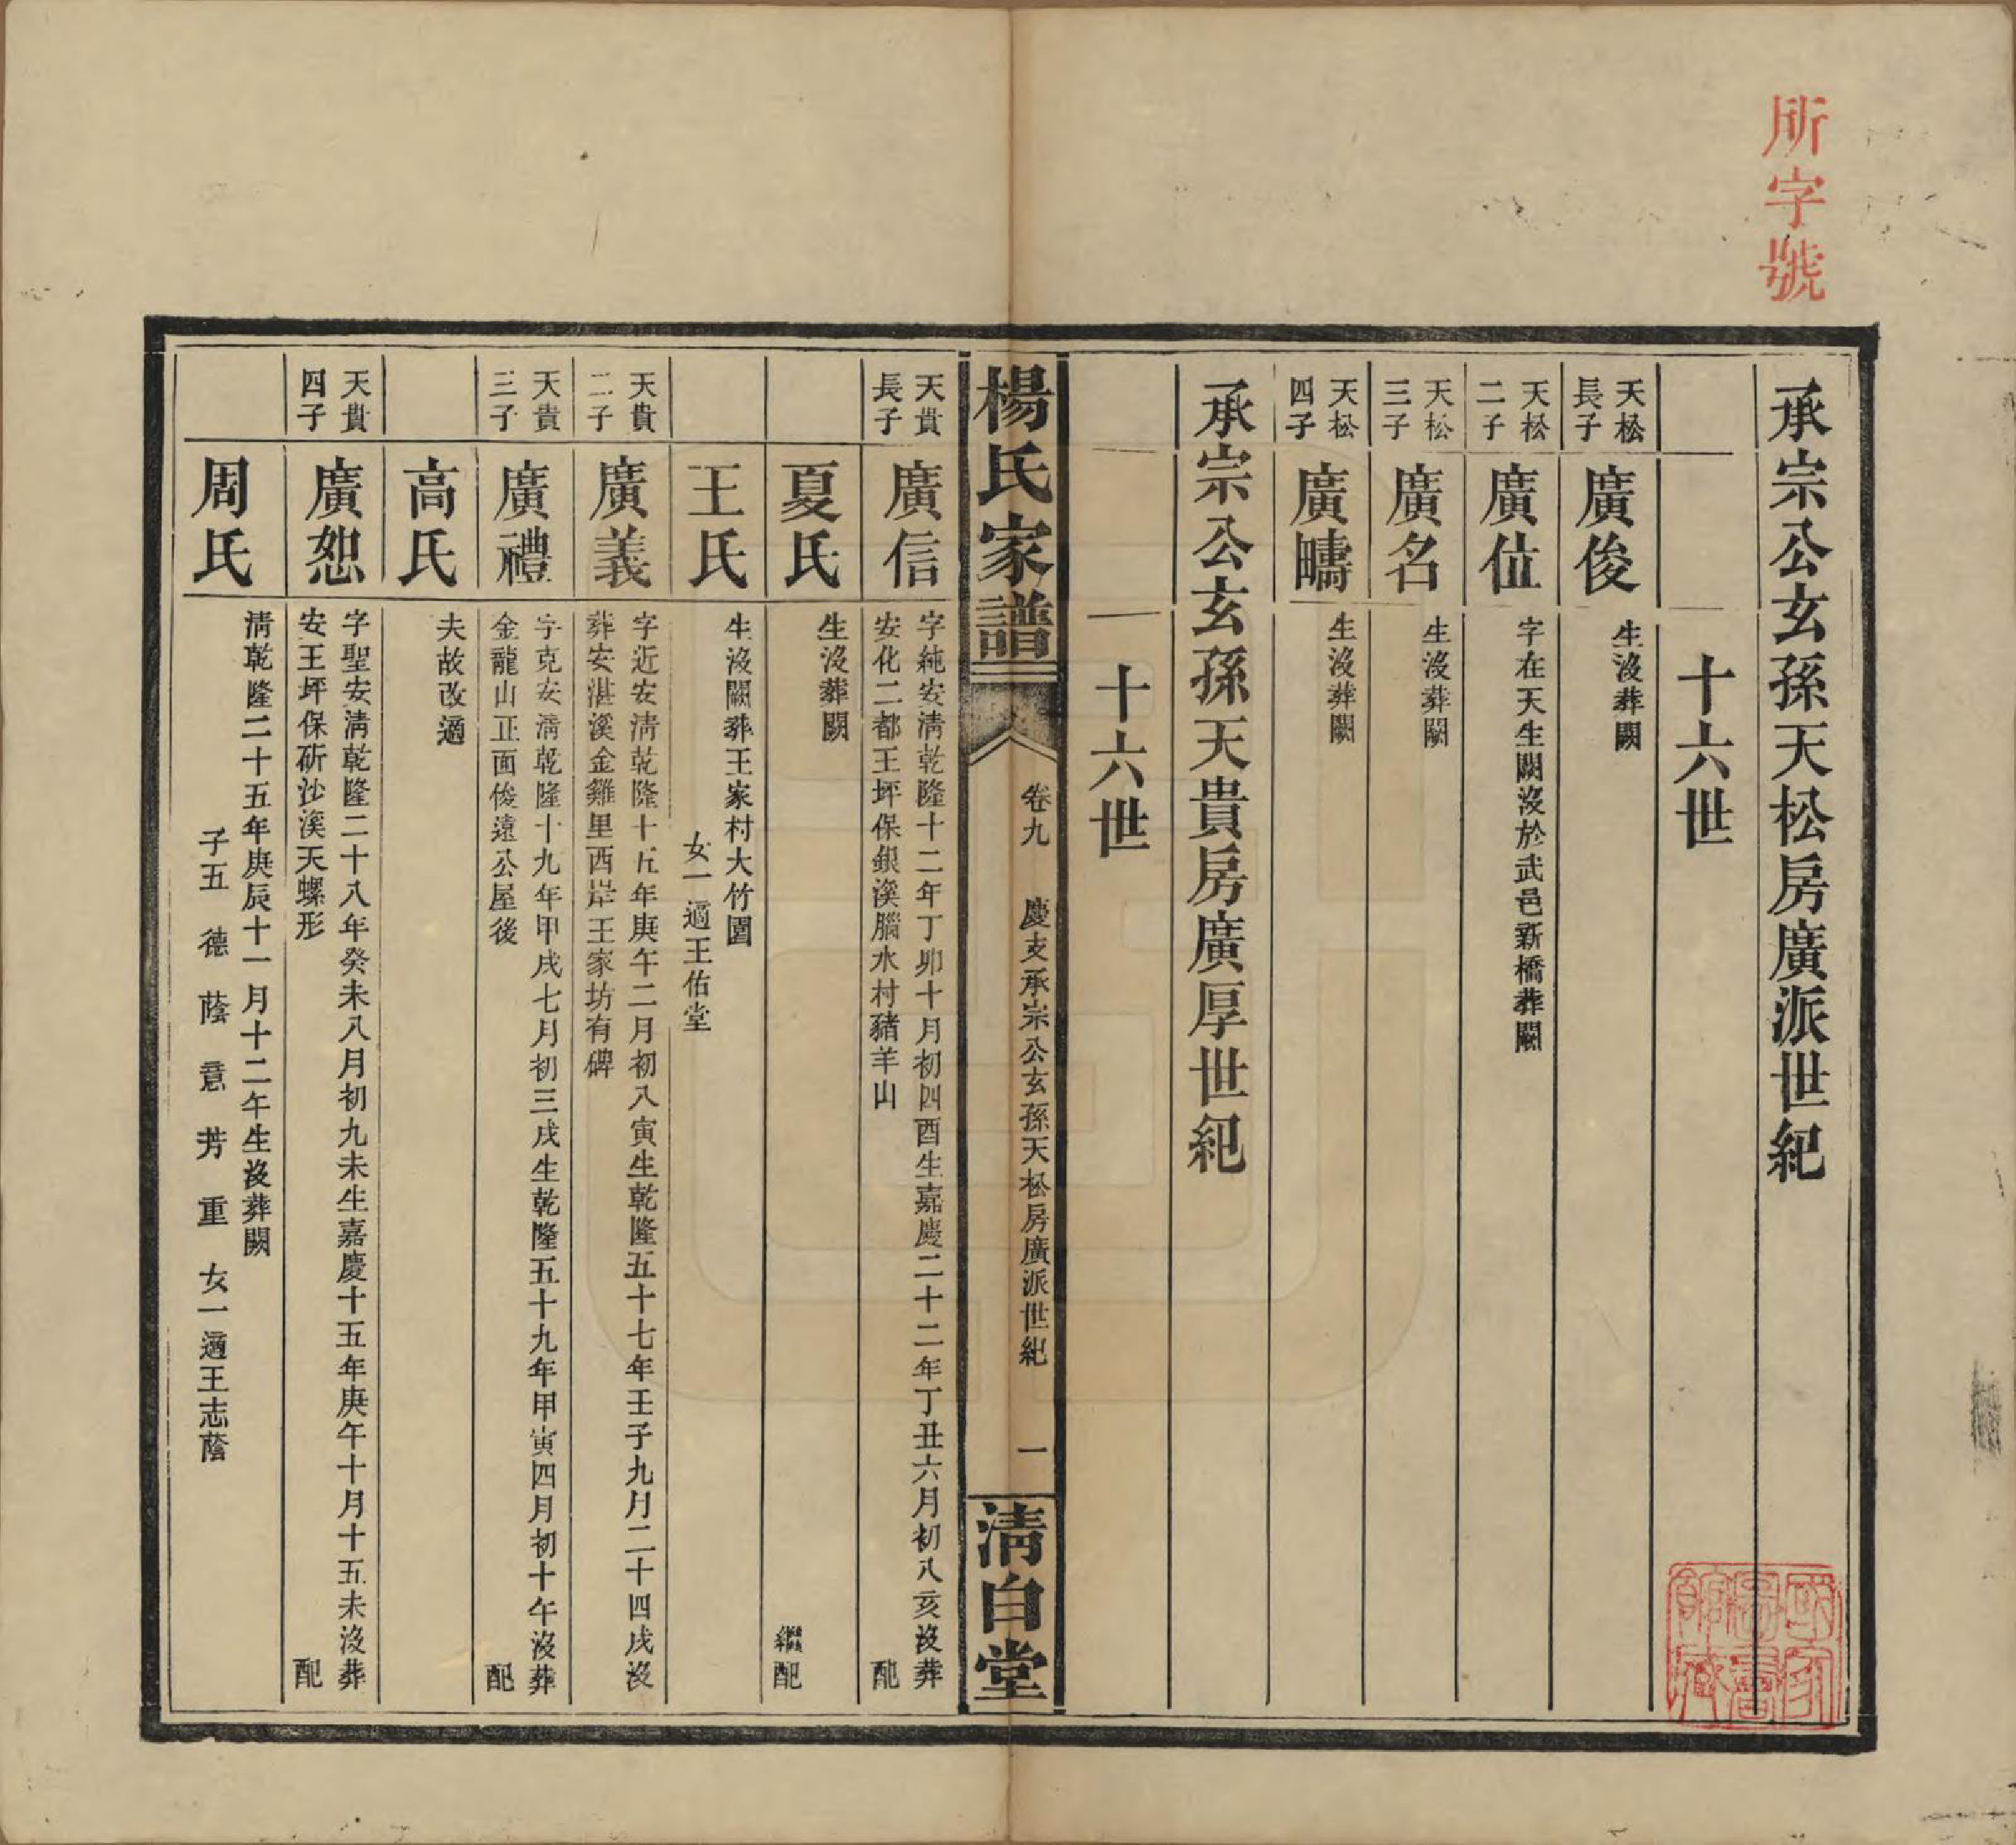 所字號
承宗公玄孫天松房廣派世紀
十六世
天松
長子
廣俊
生沒葬闕
天松
二子
廣位
字在天生闕沒於武邑新橋葬闕
天松
三子
廣名
生沒葬闕
天松
四子
廣疇
生沒葬闕
承宗公玄孫天貴房廣厚世紀
十六世
楊氏家譜
卷九
慶支承宗公玄孫天松房廣派世紀
一
淸白堂
天貴
長子
廣信
字純安淸乾隆十二年丁卯十月初四酉生嘉慶二十二年丁丑六月初八亥沒葬
安化二都王坪保銀溪腦水村豬羊山 配
夏氏
生沒葬闕
繼配
王氏
生沒闕葬王家村大竹園
女一適王佑堂
天貴
二子
廣義
字近安淸乾隆十五年庚午二月初八寅生乾隆五十七年壬子九月二十四戌沒
葬安湛溪金雞里西岸王家坊有碑
天貴
三子
廣禮
字克安淸乾隆十九年甲戌七月初三戌生乾隆五十九年甲寅四月初十午沒葬
金龍山正面俊遠公屋後 配
高氏
夫故改適
天貴
四子
廣恕
字聖安淸乾隆二十八年癸未八月初九未生嘉慶十五年庚午十月十五未沒葬
安王坪保斫沙溪天螺形 配
周氏
淸乾隆二十五年庚辰十一月十二午生沒葬闕
子五 德 蔭 意 芳 重 女一適王志蔭